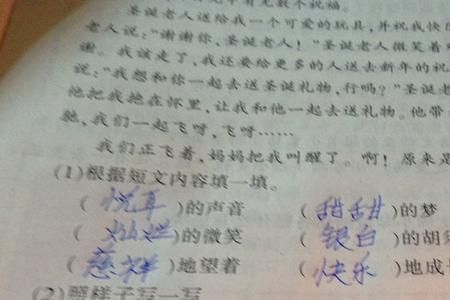 圣诞老人送给我一个可爱的玩具，并祝我快
老人说："谢谢你，圣诞老人！"圣诞老人微笑着
谢。我该走了，我还要给更多的人送去新年的祝
说："我想和你一起去送圣诞礼物，行吗？"圣诞老
他把我抱在怀里，让我和他一起去送礼物。他带
驰，我们一起飞呀，飞呀……
我们正飞着，妈妈把我叫醒了。啊！原来是
(1)根据短文内容填一填。
(悦耳)的声音 (甜甜)的梦
(灿烂)的微笑 (银白)的胡
(慈祥)地望着 (快乐)地成
(2)照样子写一写